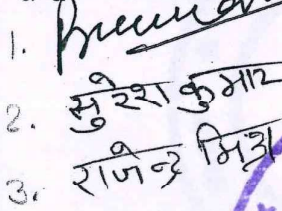 1.
2. सुरेश कुमार
3. राजेन्द्र मिश्रा